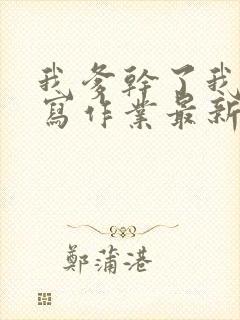 我爹幹了我
寫作業最新
鄭蒲港